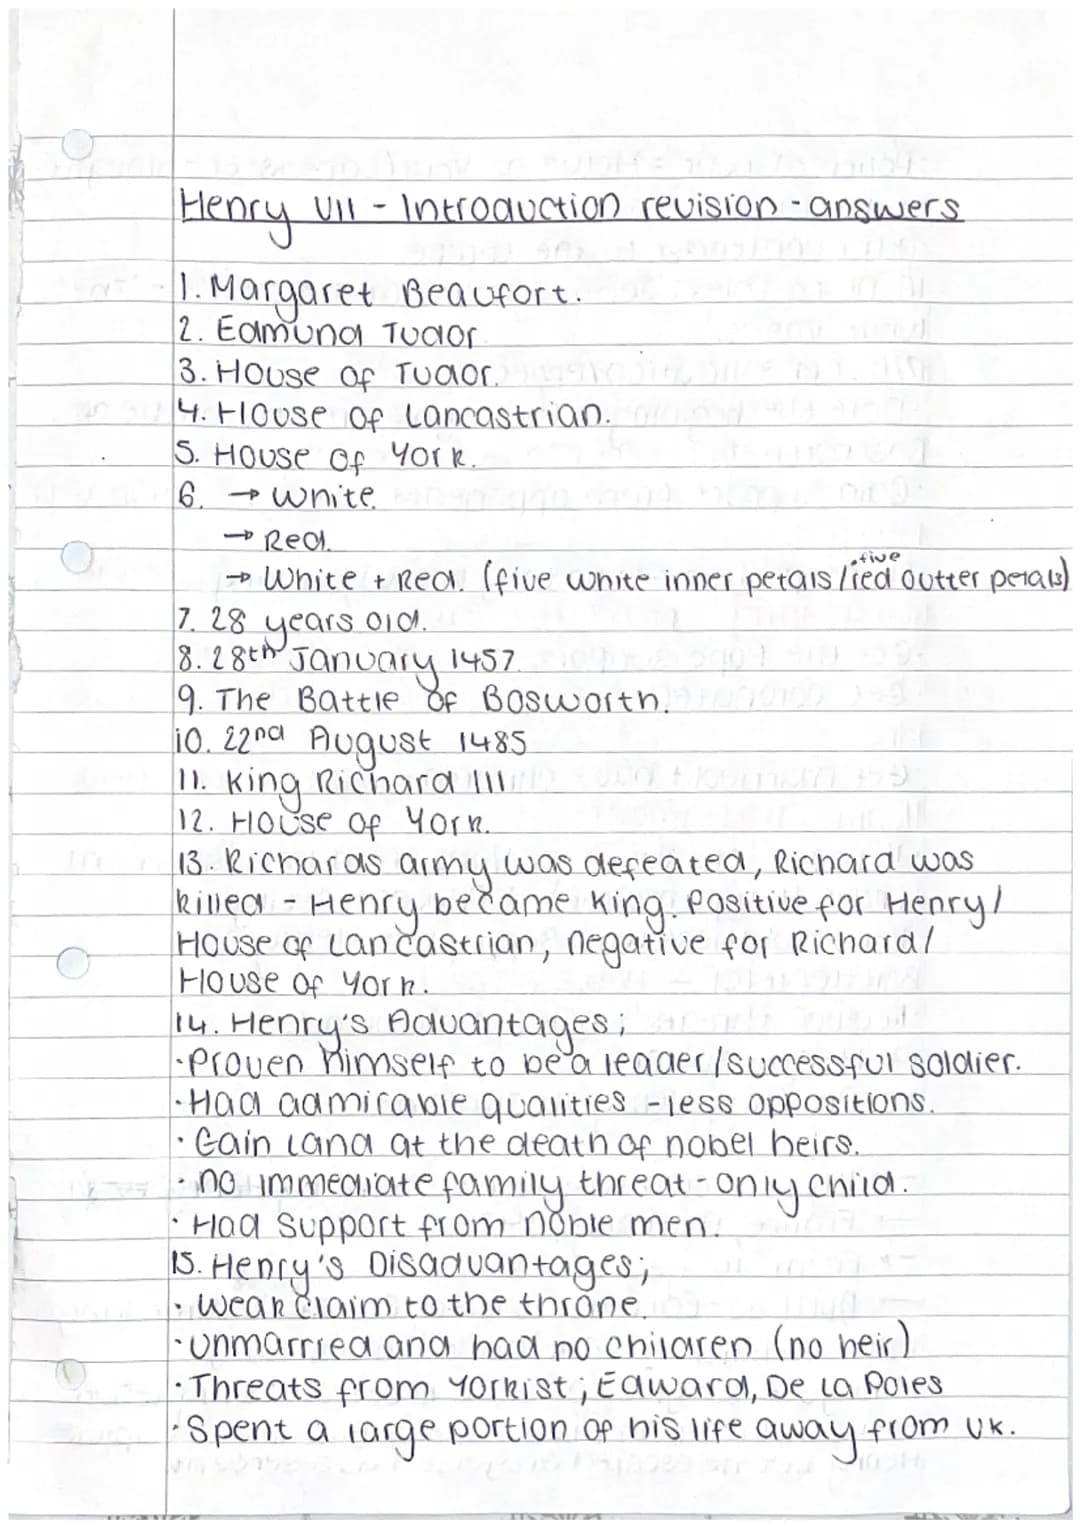 Henry VII - Introduction revision - answers
1. Margaret Beaufort.
2. Edmund Tudor
3. House of Tudor.
4. House of Lancastrian.
5. House of York.
6. → White.
→ Red.
→ White + Red. (five white inner petals / five red outter petals)
7. 28 years old.
8. 28th January 1457.
9. The Battle of Bosworth.
10. 22nd August 1485
11. King Richard III
12. House of York.
13. Richards army was defeated, Richard was
killed - Henry became King. Positive for Henry/
House of Lancastrian, negative for Richard/
House of York.
14. Henry's Advantages;
· Proven himself to be a leader/successful soldier.
· Had admirable qualities - less oppositions.
· Gain land at the death of nobel heirs.
· no immediate family threat - only child.
· Had support from noble men.
15. Henry's Disadvantages;
· Weak claim to the throne.
· unmarried and had no children (no heir)
· Threats from Yorkist; Edward, De La Poles
· Spent a large portion of his life away from UK.